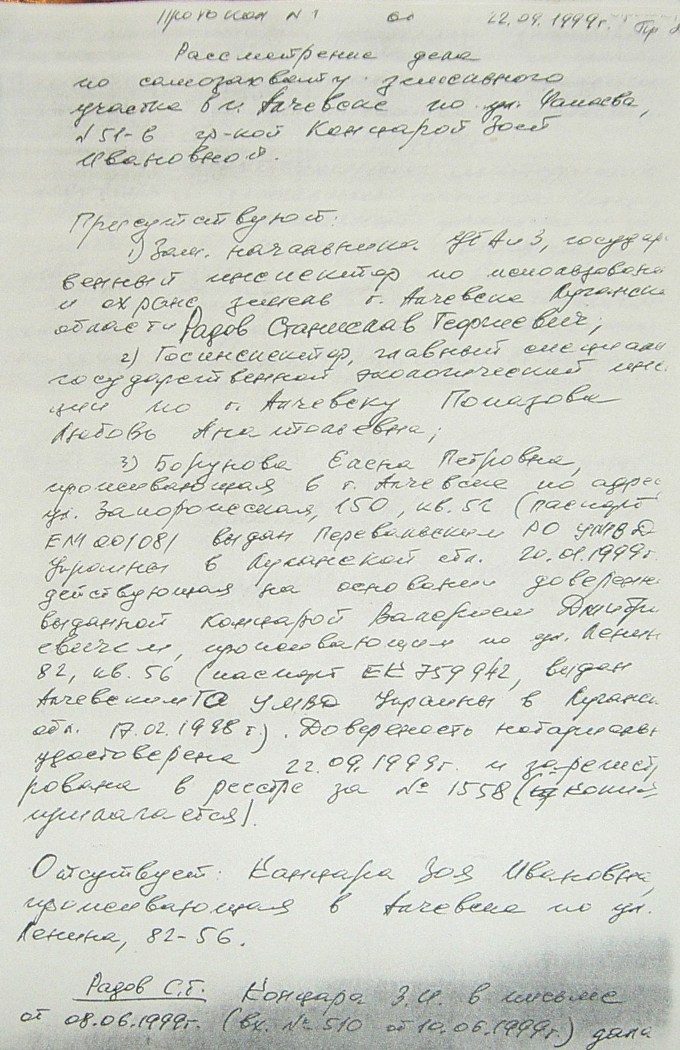 Протокол №1 от 22.09.1999г.
Рассмотрение дела
по самозахвату земельного
участка в г. Алчевске по ул.
№51-в гр-кой Концарой Зоей
Ивановной.
Присутствуют:
1) Зам. начальника УГАиЗ, государ
венный инспектор по использован
и охране земель г. Алчевска Луганско
области Радов Станислав Георгиевич;
2) Госинспектор, главный специали
государственной экологической инс
ции по г. Алчевску
Любовь Анатольевна;
3) Борунова Елена Петровна,
проживающая в г. Алчевске по адрес
ул. Запорожская, 150, кв. 52 (паспорт
ЕМ 001081 выдан Перевальским РО УМВД
Украины в Луганской обл. 20.01.1999г.
действующая на основании доверенн
выданной Концарой Валерием Дмитри
евичем, проживающим по ул. Ленин
82, кв. 56 (паспорт ЕК 759942, выдан
Алчевским ГО УМВД Украины в Луганс
обл. 17.02.1998г.). Доверность нотариальн
удостоверена 22.09.1999г. и зарегист
рована в реестре за № 1558 (копия
прилагается).
Отсутствует: Концара Зоя Ивановна,
проживающая в Алчевске по ул.
Ленина, 82-56.
Радов С.Г. Концара З.И. в письме
от 08.06.1999г. (вх. №510 от 10.06.1999г.) дала